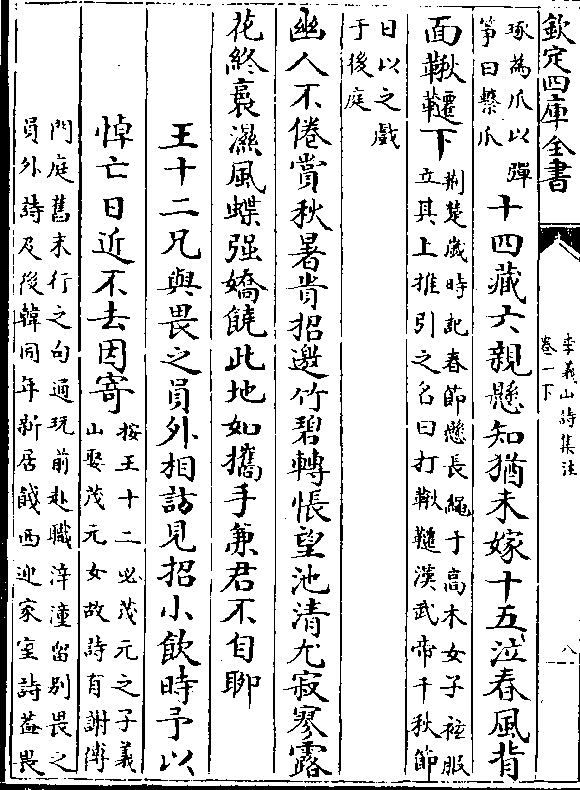 欽定四庫全書
李義山詩集注
卷一下
八
琢為爪以彈
筝曰繫爪
十四藏六親懸知猶未嫁十五泣春風背
面鞦韆下
荆楚嵗時記春節懸長繩于髙木女子袨服
立其上推引之名曰打鞦韆漢武帝千秋節
日以之戲
于後庭
幽人不倦賞秋暑貴招邀竹碧轉悵望池清尤寂寥露
花終裛濕風蝶强嬌饒此地如攜手兼君不自聊
王十二兄與畏之員外相訪見招小飲時予以
悼亡日近不去因寄
按王十二必茂元之子義
山娶茂元女故詩有謝傅
門庭舊末行之句通玩前赴職梓潼留别畏之
員外詩及後韓同年新居餞西迎家室詩葢畏